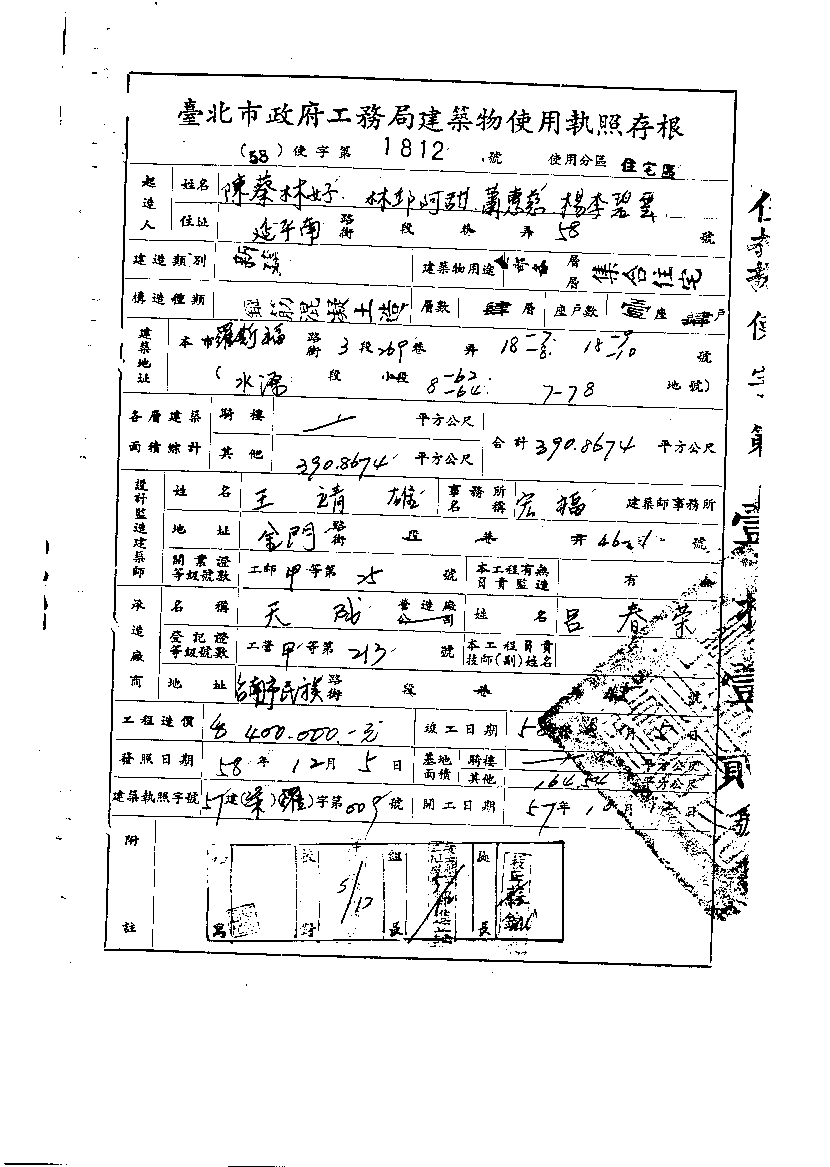 臺北市政府工務局建築物使用執照存根
(58)使字第 1812 號 使用分區 住宅區
起造人 姓名 陳蔡林好 林邱阿甜 蕭惠慈 楊李碧雲
住址 延平南 路街 段 巷 弄 58 號
建造類別 新築 建築物用途 層層 集合住宅
構造種類 鋼筋混凝土造 層數 肆層 座戶數 壹座 肆戶
建築地址 本市羅斯福 路街 3段269巷 弄 18-7-8 18-9-10 號
(水源 段 小段 8-62-64 7-78 地號)
各層建築面積綜計 騎樓 平方公尺 合計390.8674 平方公尺
其他 390.8674 平方公尺
設計監造建築師 姓名 王靖雄 事務所名稱 宏福 建築師事務所
地址 金門 路街 段 巷 弄 號
開業證等級號數 工師甲等第 25 號 本工程有無負責監造 有
承造廠商 名稱 天成 營造廠公司 姓名 呂春榮
登記證等級號數 工營甲等第 213 號 本工程負責技師(副)姓名
地址 台南市民族 路街 段 巷 號
工程造價 400.000-元 竣工日期 58 月5日
發照日期 58年12月5日 基地面積 騎樓 平方公尺
其他 164.54 平方公尺
建築執照字號 57建( )字第009號 開工日期 57年 月 日
附註 校對 5/12 組長 處長